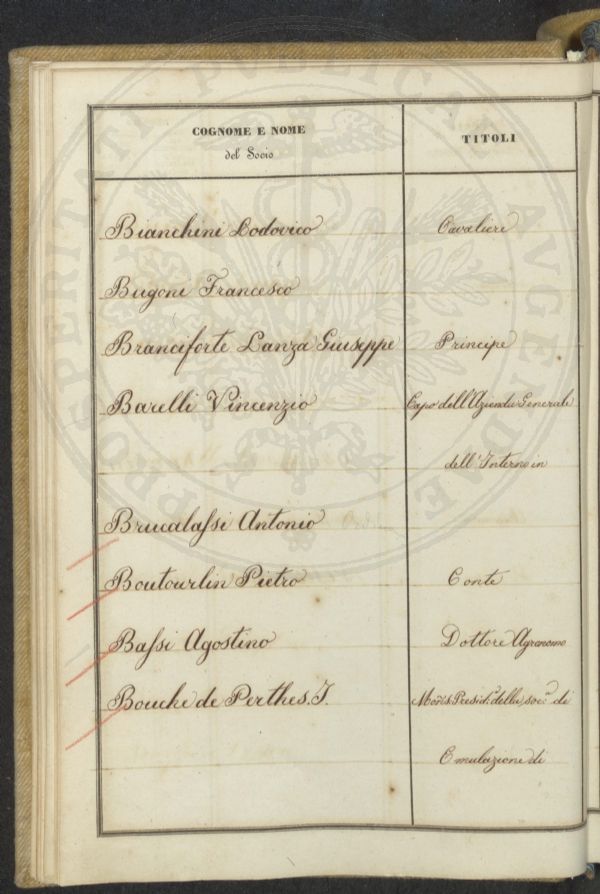 COGNOME E NOME
del Socio
TITOLI
Bianchini Lodovico Cavaliere
Bugoni Francesco
Branciforte Lanza Giuseppe Principe
Barelli Vincenzio Capo dell'Azienda Generale
dell'Interno in
Brucalassi Antonio
Boutourlin Pietro Conte
Bassi Agostino Dottore Agronomo
Bouche de Perthes. J. Presid.e della soc.a di
Emulazione di
PROSPERITATI PVBLICAE AVGENDAE